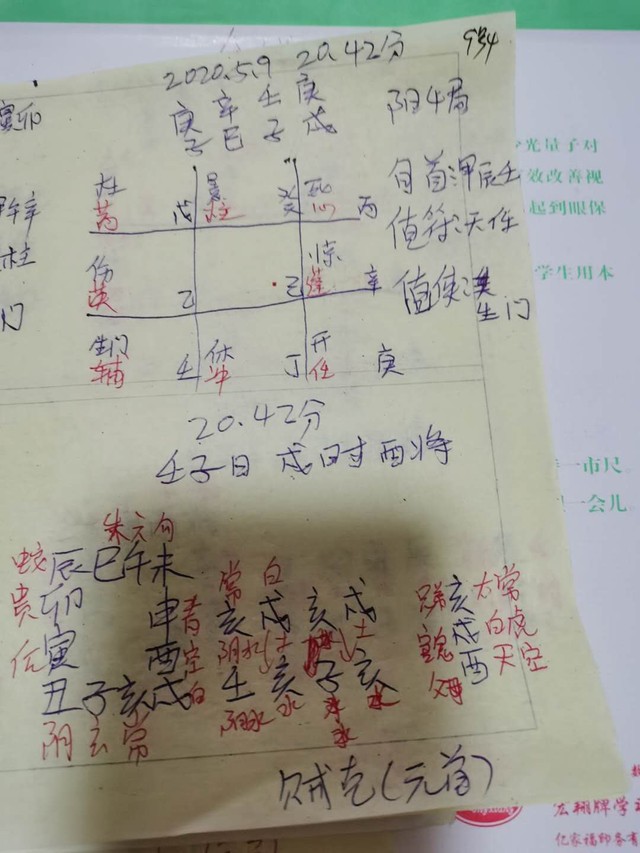 934
2020.5.9 20.42分
寅卯
庚辛壬庚
子巳子戌
阴4局
杜 景 死
芮 戊 柱 癸 心 丙
旬首:甲辰壬
值符:天任
伤 惊
英 乙 己 蓬 辛
值使:
生门
柱
门
生门 休 开
辅 壬 冲 丁 任 庚
20.42分
壬子日 戌时 酉将
朱六勾
蛇辰巳午未 常 白
贵卯 申青 亥戌亥戌 亥太常
寅 酉空 阴水 土 土 戌白虎
丑子亥戌白 壬亥子亥 父母酉天空
阴玄常 阳水 水 水 水
贼克(元首)
光量子对
效改善视
起到眼保
学生用本
一市尺
一会儿
宏翔牌学